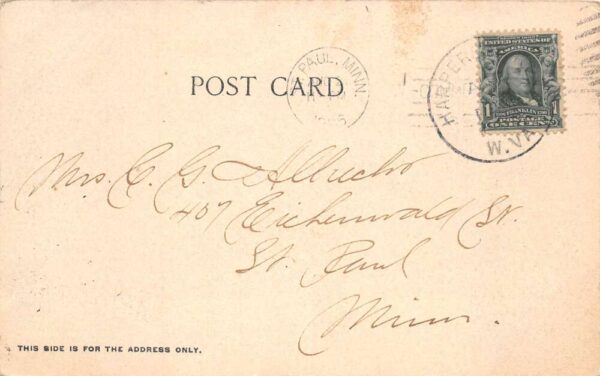 PAUL, MINN.
POST CARD
HARPER
W. VA
UNITED STATES OF
AMERICA
FRANKLIN
1 1
POSTAGE
ONE CENT
Mrs. C. G.
407 Eichenwald St.
St. Paul
Minn.
THIS SIDE IS FOR THE ADDRESS ONLY.